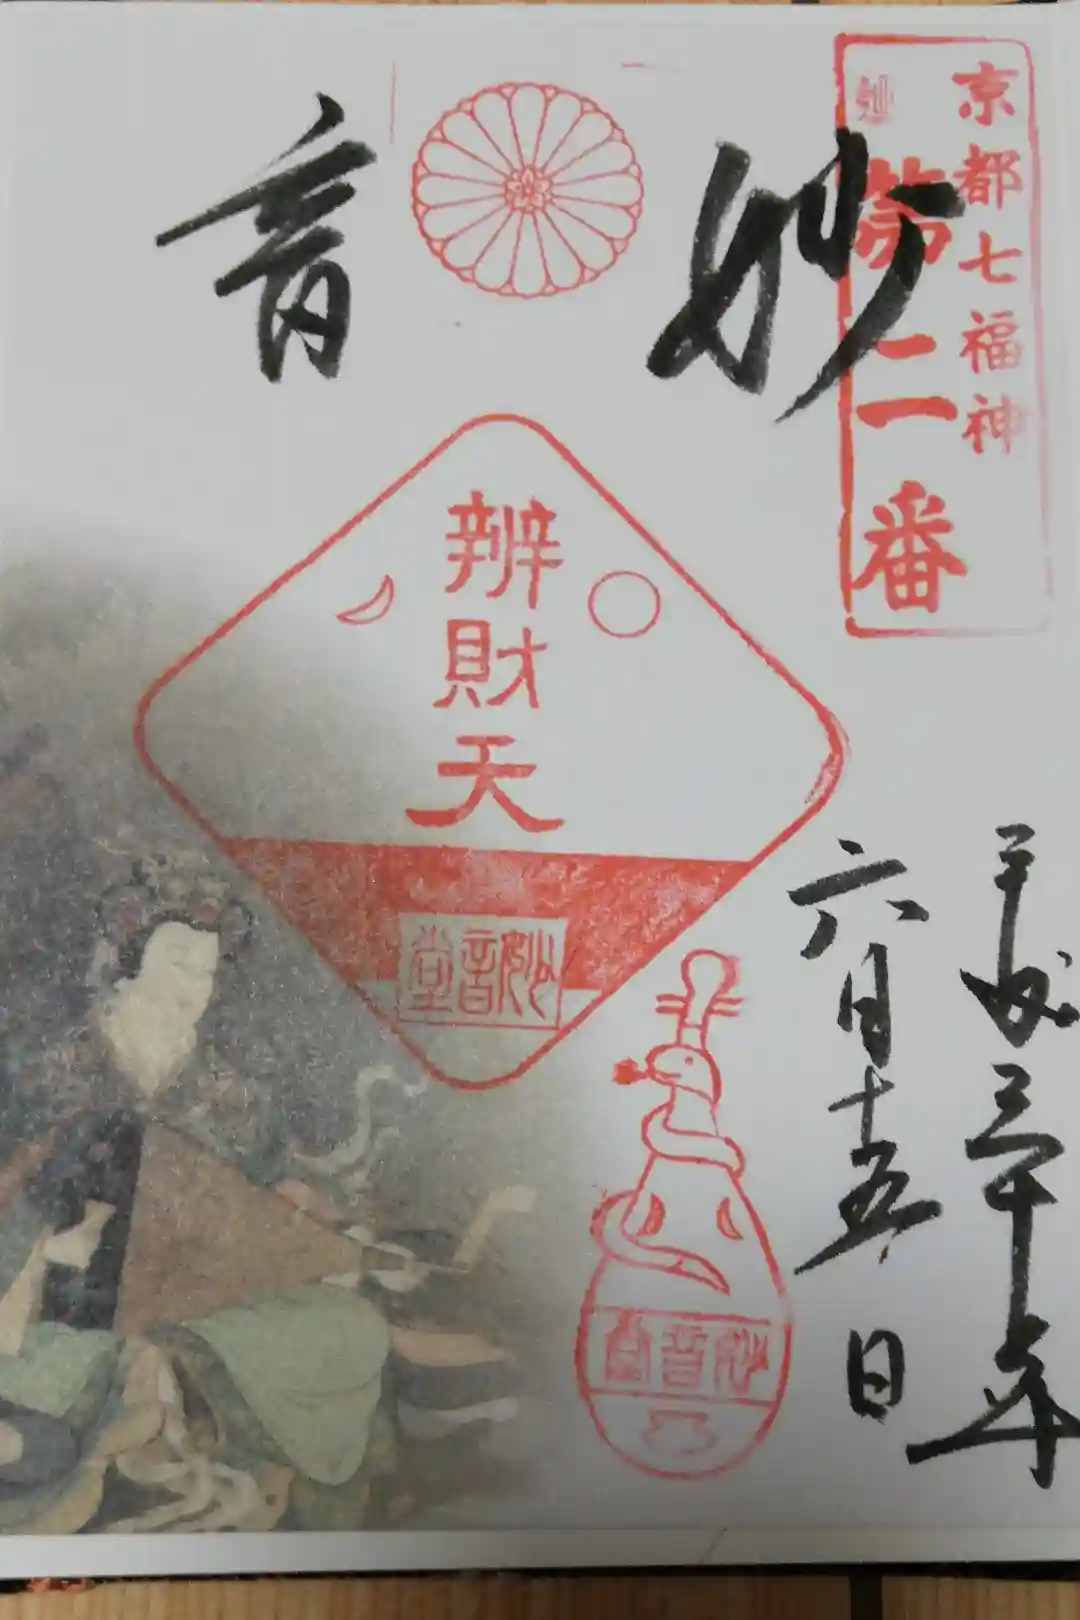 京都七福神
第二番
妙音
辨財天
妙音堂
妙音堂
平成三十年
六月十五日